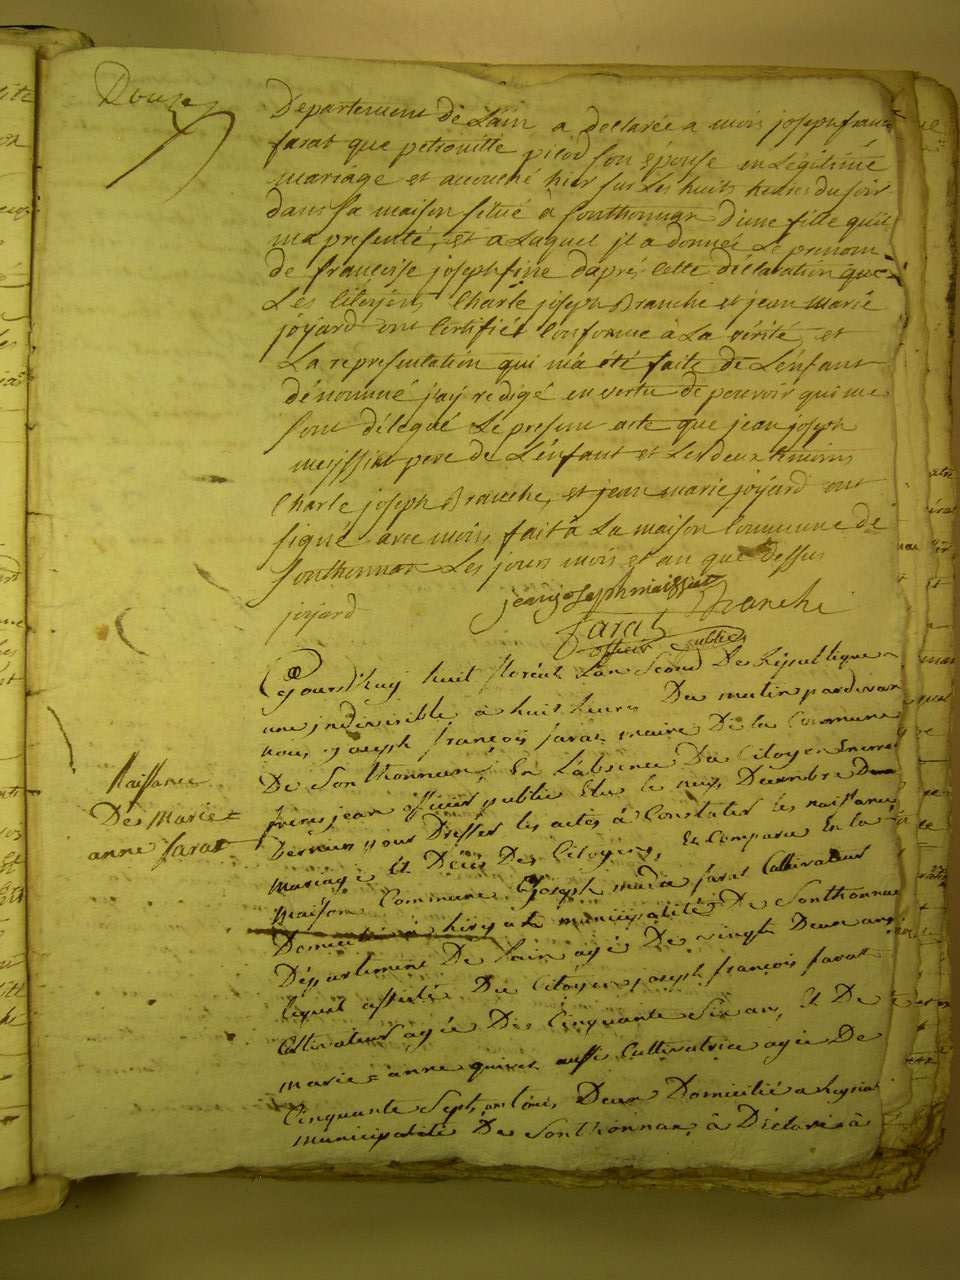 Douze
Departement de Lain a declarée a mois joseph franc
farat que petronille pilod son épouse en Légitimé
mariage et accouché hier sur Les huits heures du soir
dans sa maison situé a Sonthonnax d'une fille quil
ma presenté, et a Laquel jl a donnée Le prenom
de françoise josephtine daprés cette déclaration que
Les Citoyens Charle joseph Branche et jean marie
joyard ont Certifiée Conforme à La vérité et
La represantation qui ma été faite de L'enfant
dénommé j'ay redigé en vertu de pouvoir qui me
sont délégué Le present acte que jean joseph
meissiat pere de L'enfant et Les deux temoins
Charle joseph Branche, et jean marie joyard ont
signé avec mois, fait à La maison Commune de
Sonthonnax Les jours mois et an que dessus
jean joseph maissiat Branche
joyard
farat
officier public
jourd'huy huit floréal Lan Second De Republique
une jndivisible à huit heures Du matin pardevan
nous, joseph françois farat maire De la Commune
De Sonthonnax, En L'absence Du Citoyen
frere jean officier public Elu le neuf Decembre
Dernier pour Dresser les actes à Constater les naissance
mariage Et Décés Des Citoyens, Est Comparu En la
Naissance
De Marie=
anne farat
maison Commune joseph marie farat Cultivateur
Domicilié à heyriat municipalité De Sonthonnax
Département De Lain agé De vingt Deux ans
lequel assisté Du Citoyen joseph françois farat
Cultivateur agée De Cinquante Six an, Et De
marie=anne aussi Cultivatrice agée De
Cinquante Sept, Deux Domicilié a heyriat
municipalité De Sonthonnax, à Déclaré à